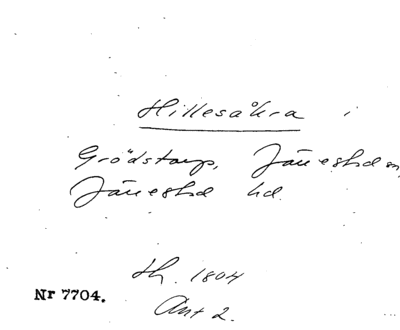 Hillesåkra i
Grödstorp, Järrestad sn,
Järrestad hd.
Sk. 1804
Nr 7704.
Ant 2.